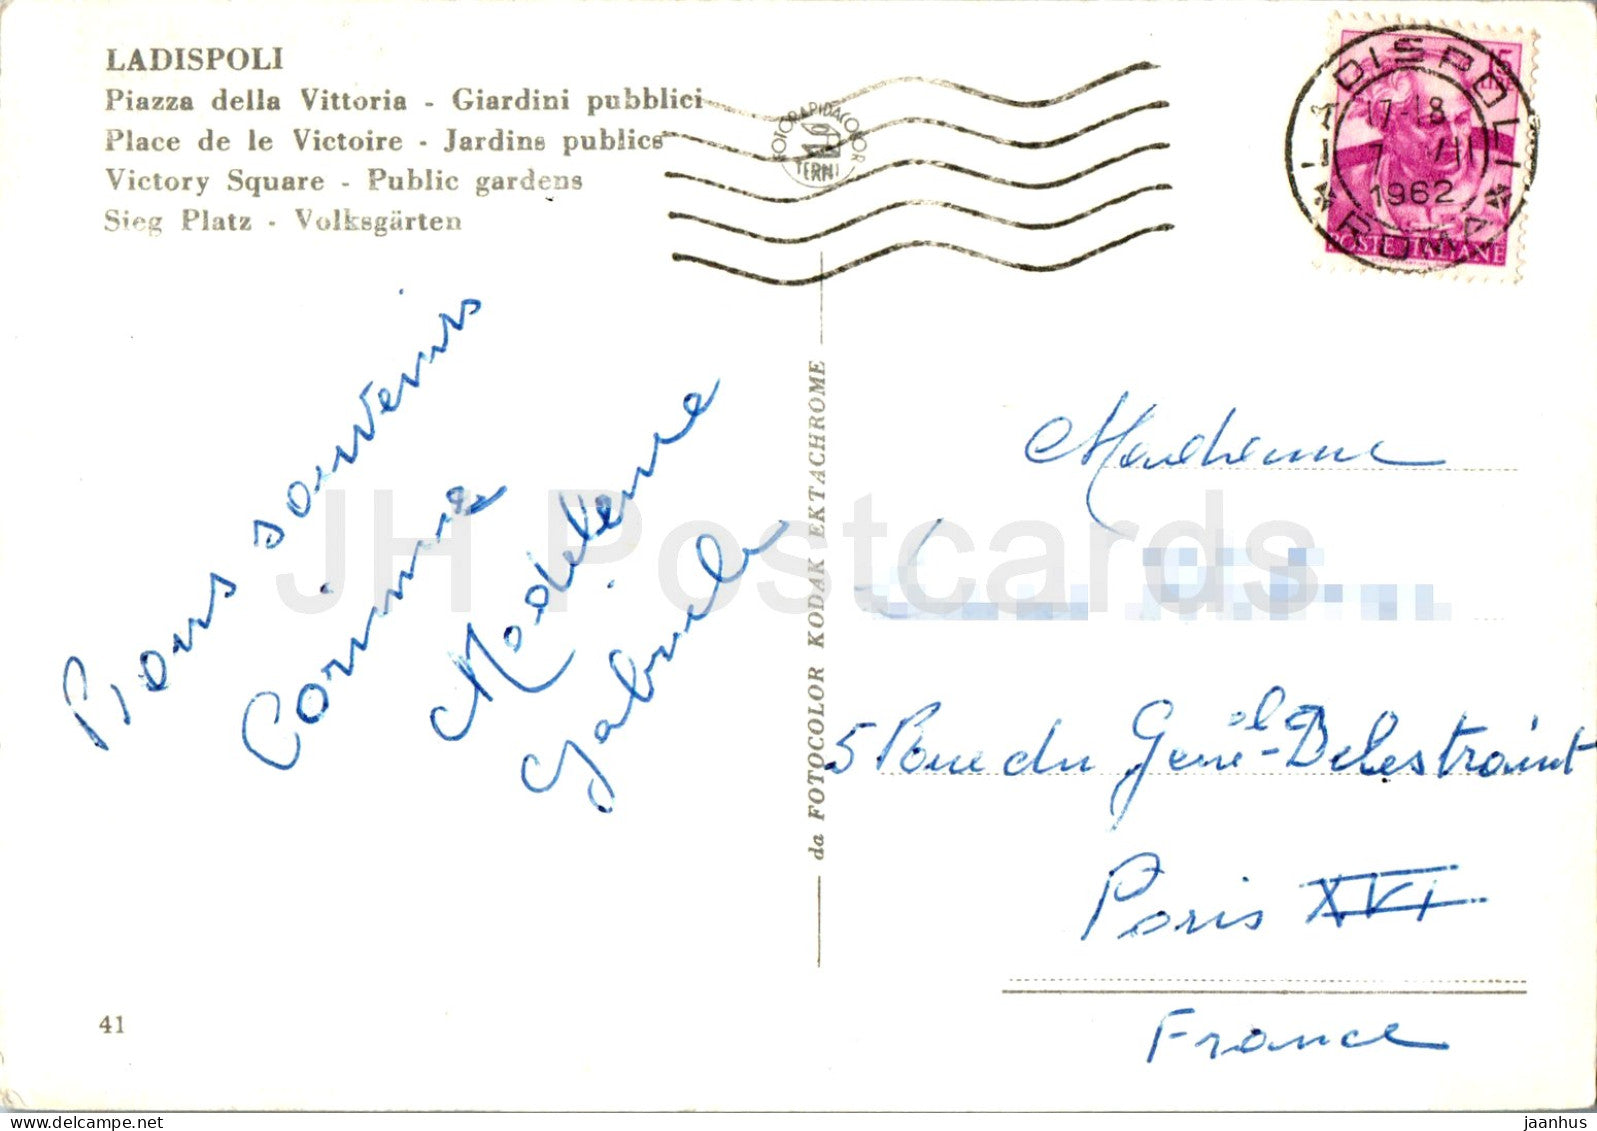 LADISPOLI
Piazza della Vittoria - Giardini pubblici
Place de le Victoire - Jardins publics
Victory Square - Public gardens
Sieg Platz - Volksgärten
FOTORAPIDACOLOR
TERNI
LADISPOLI
17-18
7 VII
1962
ROMA
15
POSTE ITALIANE
Bons souvenirs
Corinne
Madeleine
Gabriele
da FOTOCOLOR KODAK EKTACHROME
Madame
5 Rue du Genéral Delestraint
Paris XVI
France
41
JH Postcards
jaanhus